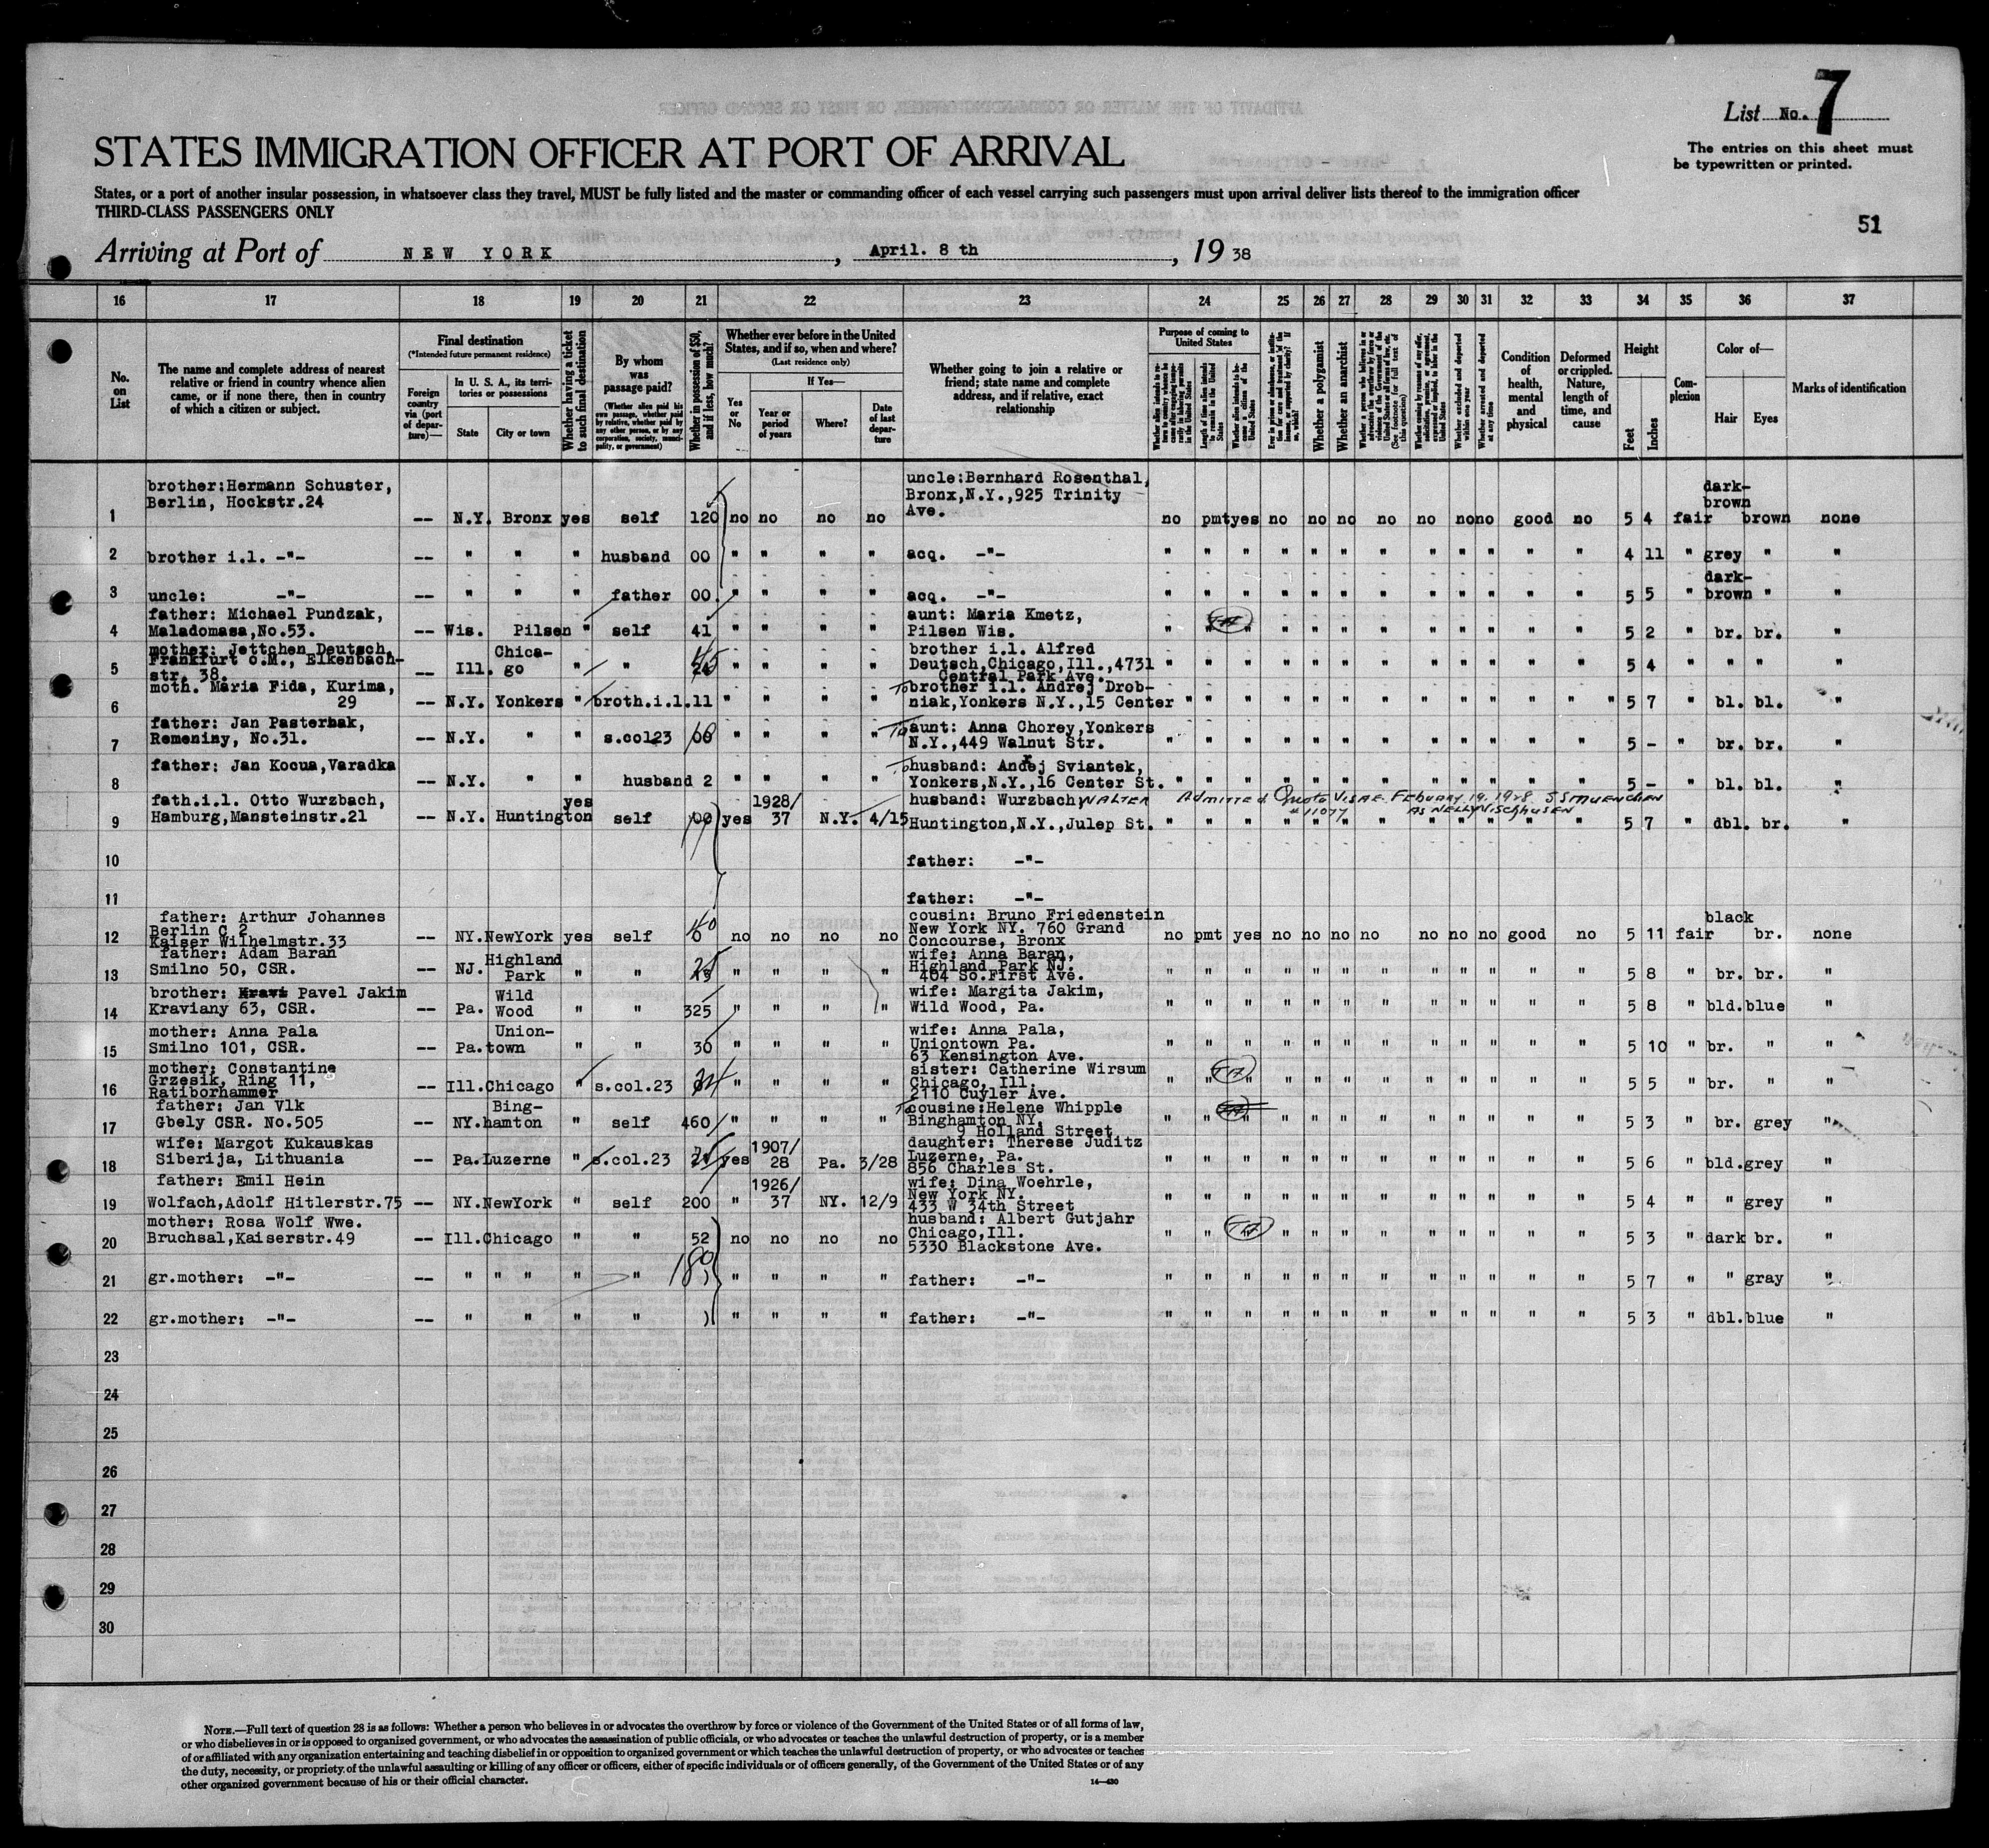 List No. 7
The entries on this sheet must
be typewritten or printed.
STATES IMMIGRATION OFFICER AT PORT OF ARRIVAL
States, or a port of another insular possession, in whatsoever class they travel, MUST be fully listed and the master or commanding officer of each vessel carrying such passengers must upon arrival deliver lists thereof to the immigration officer
THIRD-CLASS PASSENGERS ONLY
51
Arriving at Port of NEW YORK, April. 8 th, 19 38
16 17 18 19 20 21 22 23 24 25 26 27 28 29 30 31 32 33 34 35 36 37
No. on List
The name and complete address of nearest relative or friend in country whence alien came, or if none there, then in country of which a citizen or subject.
Final destination
(*Intended future permanent residence)
Foreign country via (port of departure)—
In U. S. A., its territories or possessions
State
City or town
Whether having a ticket to such final destination
By whom was passage paid?
(Whether alien paid his own passage, whether paid by relative, whether paid by any other person, or by any corporation, society, municipality, or government)
Whether in possession of $50, and if less, how much?
Whether ever before in the United States, and if so, when and where?
(Last residence only)
Yes or No
If Yes—
Year or period of years
Where?
Date of last departure
Whether going to join a relative or friend; state name and complete address, and if relative, exact relationship
Purpose of coming to United States
Length of time alien intends to remain in the United States
Whether alien intends to become a citizen of the United States
Whether a polygamist
Whether an anarchist
Whether excluded and deported within one year
Whether arrested and deported at any time
Condition of health, mental and physical
Deformed or crippled. Nature, length of time, and cause
Height
Feet
Inches
Complexion
Color of—
Hair
Eyes
Marks of identification
1 brother:Hermann Schuster, Berlin, Hockstr.24 -- N.Y. Bronx yes self 120 no no no no uncle:Bernhard Rosenthal, Bronx,N.Y.,925 Trinity Ave. no pmt yes no no no no no no no good no 5 4 fair dark-brown brown none
2 brother i.l. -"- -- " " " husband 00 " " " " acq. -"- " " " " " " " " " " " " 4 11 " grey " "
3 uncle: -"- -- " " " father 00 " " " " acq. -"- " " " " " " " " " " " " 5 5 " dark-brown " "
4 father: Michael Pundzak, Maladomasa,No.53. -- Wis. Pilsen " self 41 " " " " aunt: Maria Kmetz, Pilsen Wis. " " " " " " " " " " " 5 2 " br. br. "
5 mother: Jettchen Deutsch, Frankfurt o.M., Elkenbach-str. 38. -- Ill. Chica-go " " 45 " " " " brother i.l. Alfred Deutsch,Chicago,Ill.,4731 Central Park Ave. " " " " " " " " " " " " 5 4 " " " "
6 moth. Maria Fida, Kurima, 29 -- N.Y. Yonkers " broth.i.l. 11 " " " " To brother i.l. Andrej Drob-niak,Yonkers N.Y.,15 Center " " " " " " " " " " " " 5 7 " bl. bl. "
7 father: Jan Pasterhak, Remeniny, No.31. -- N.Y. " " s.col23 00 " " " " To aunt: Anna Chorey,Yonkers N.Y.,449 Walnut Str. " " " " " " " " " " " " 5 - " br. br. "
8 father: Jan Kocua,Varadka -- N.Y. " " husband 2 " " " " To husband: Andej Sviantek, Yonkers,N.Y.,16 Center St. " " " " " " " " " " " " 5 - " bl. bl. "
9 fath.i.l. Otto Wurzbach, Hamburg,Mansteinstr.21 -- N.Y. Huntington yes self 00 yes 1928/37 N.Y. 4/15 husband: Wurzbach, WALTER Huntington,N.Y.,Julep St. " " " " " " " " " " " " 5 7 " dbl. br. "
ADMITTED Quota VISA FEBUARY 19. 1928 S.S MUENCHEN
# 11077 AS NELLY VISCHHUSEN
10 father: -"-
11 father: -"-
12 father: Arthur Johannes Berlin C 2 Kaiser Wilhelmstr.33 -- NY. NewYork yes self 40 no no no no cousin: Bruno Friedenstein New York NY. 760 Grand Concourse, Bronx no pmt yes no no no no no no no good no 5 11 fair black br. none
13 father: Adam Baran Smilno 50, CSR. -- NJ. Highland Park " " 25 " " " " wife: Anna Baran, Highland Park NJ. 404 So.First Ave. " " " " " " " " " " " " 5 8 " br. br. "
14 brother: Pavel Jakim Kraviany 63, CSR. -- Pa. Wild Wood " " 325 " " " " wife: Margita Jakim, Wild Wood, Pa. " " " " " " " " " " " " 5 8 " bld. blue "
15 mother: Anna Pala Smilno 101, CSR. -- Pa. Union-town " " 30 " " " " wife: Anna Pala, Uniontown Pa. 63 Kensington Ave. " " " " " " " " " " " " 5 10 " br. " "
16 mother: Constantine Grzesik, Ring 11, Ratiborhammer -- Ill. Chicago " s.col.23 " " " " sister: Catherine Wirsum Chicago, Ill. 2110 Cuyler Ave. " " " " " " " " " " " " 5 5 " br. " "
17 father: Jan Vlk Gbely CSR. No.505 -- NY. Bing-hamton " self 460 " " " " To cousine:Helene Whipple Binghamton NY. 9 Holland Street " " " " " " " " " " " " 5 3 " br. grey "
18 wife: Margot Kukauskas Siberija, Lithuania -- Pa. Luzerne " s.col.23 25 yes 1907/28 Pa. 3/28 daughter: Therese Juditz Luzerne, Pa. 856 Charles St. " " " " " " " " " " " " 5 6 " bld. grey "
19 father: Emil Hein Wolfach,Adolf Hitlerstr.75 -- NY. NewYork " self 200 " 1926/37 NY. 12/9 wife: Dina Woehrle, New York NY. 433 W 34th Street " " " " " " " " " " " " 5 4 " " grey "
20 mother: Rosa Wolf Wwe. Bruchsal,Kaiserstr.49 -- Ill. Chicago " " 52 no no no no husband: Albert Gutjahr Chicago,Ill. 5330 Blackstone Ave. " " " " " " " " " " " " 5 3 " dark br. "
21 gr.mother: -"- -- " " " " " 180 " " " " father: -"- " " " " " " " " " " " " 5 7 " " gray "
22 gr.mother: -"- -- " " " " " " " " father: -"- " " " " " " " " " " " " 5 3 " dbl. blue "
23
24
25
26
27
28
29
30
NOTE.—Full text of question 28 is as follows: Whether a person who believes in or advocates the overthrow by force or violence of the Government of the United States or of all forms of law,
or who disbelieves in or is opposed to organized government, or who advocates the assassination of public officials, or who advocates or teaches the unlawful destruction of property, or is a member
of or affiliated with any organization entertaining and teaching disbelief in or opposition to organized government or which teaches the unlawful destruction of property, or who advocates or teaches
the duty, necessity, or propriety of the unlawful assaulting or killing of any officer or officers, either of specific individuals or of officers generally, of the Government of the United States or of any
other organized government because of his or their official character.
14—430